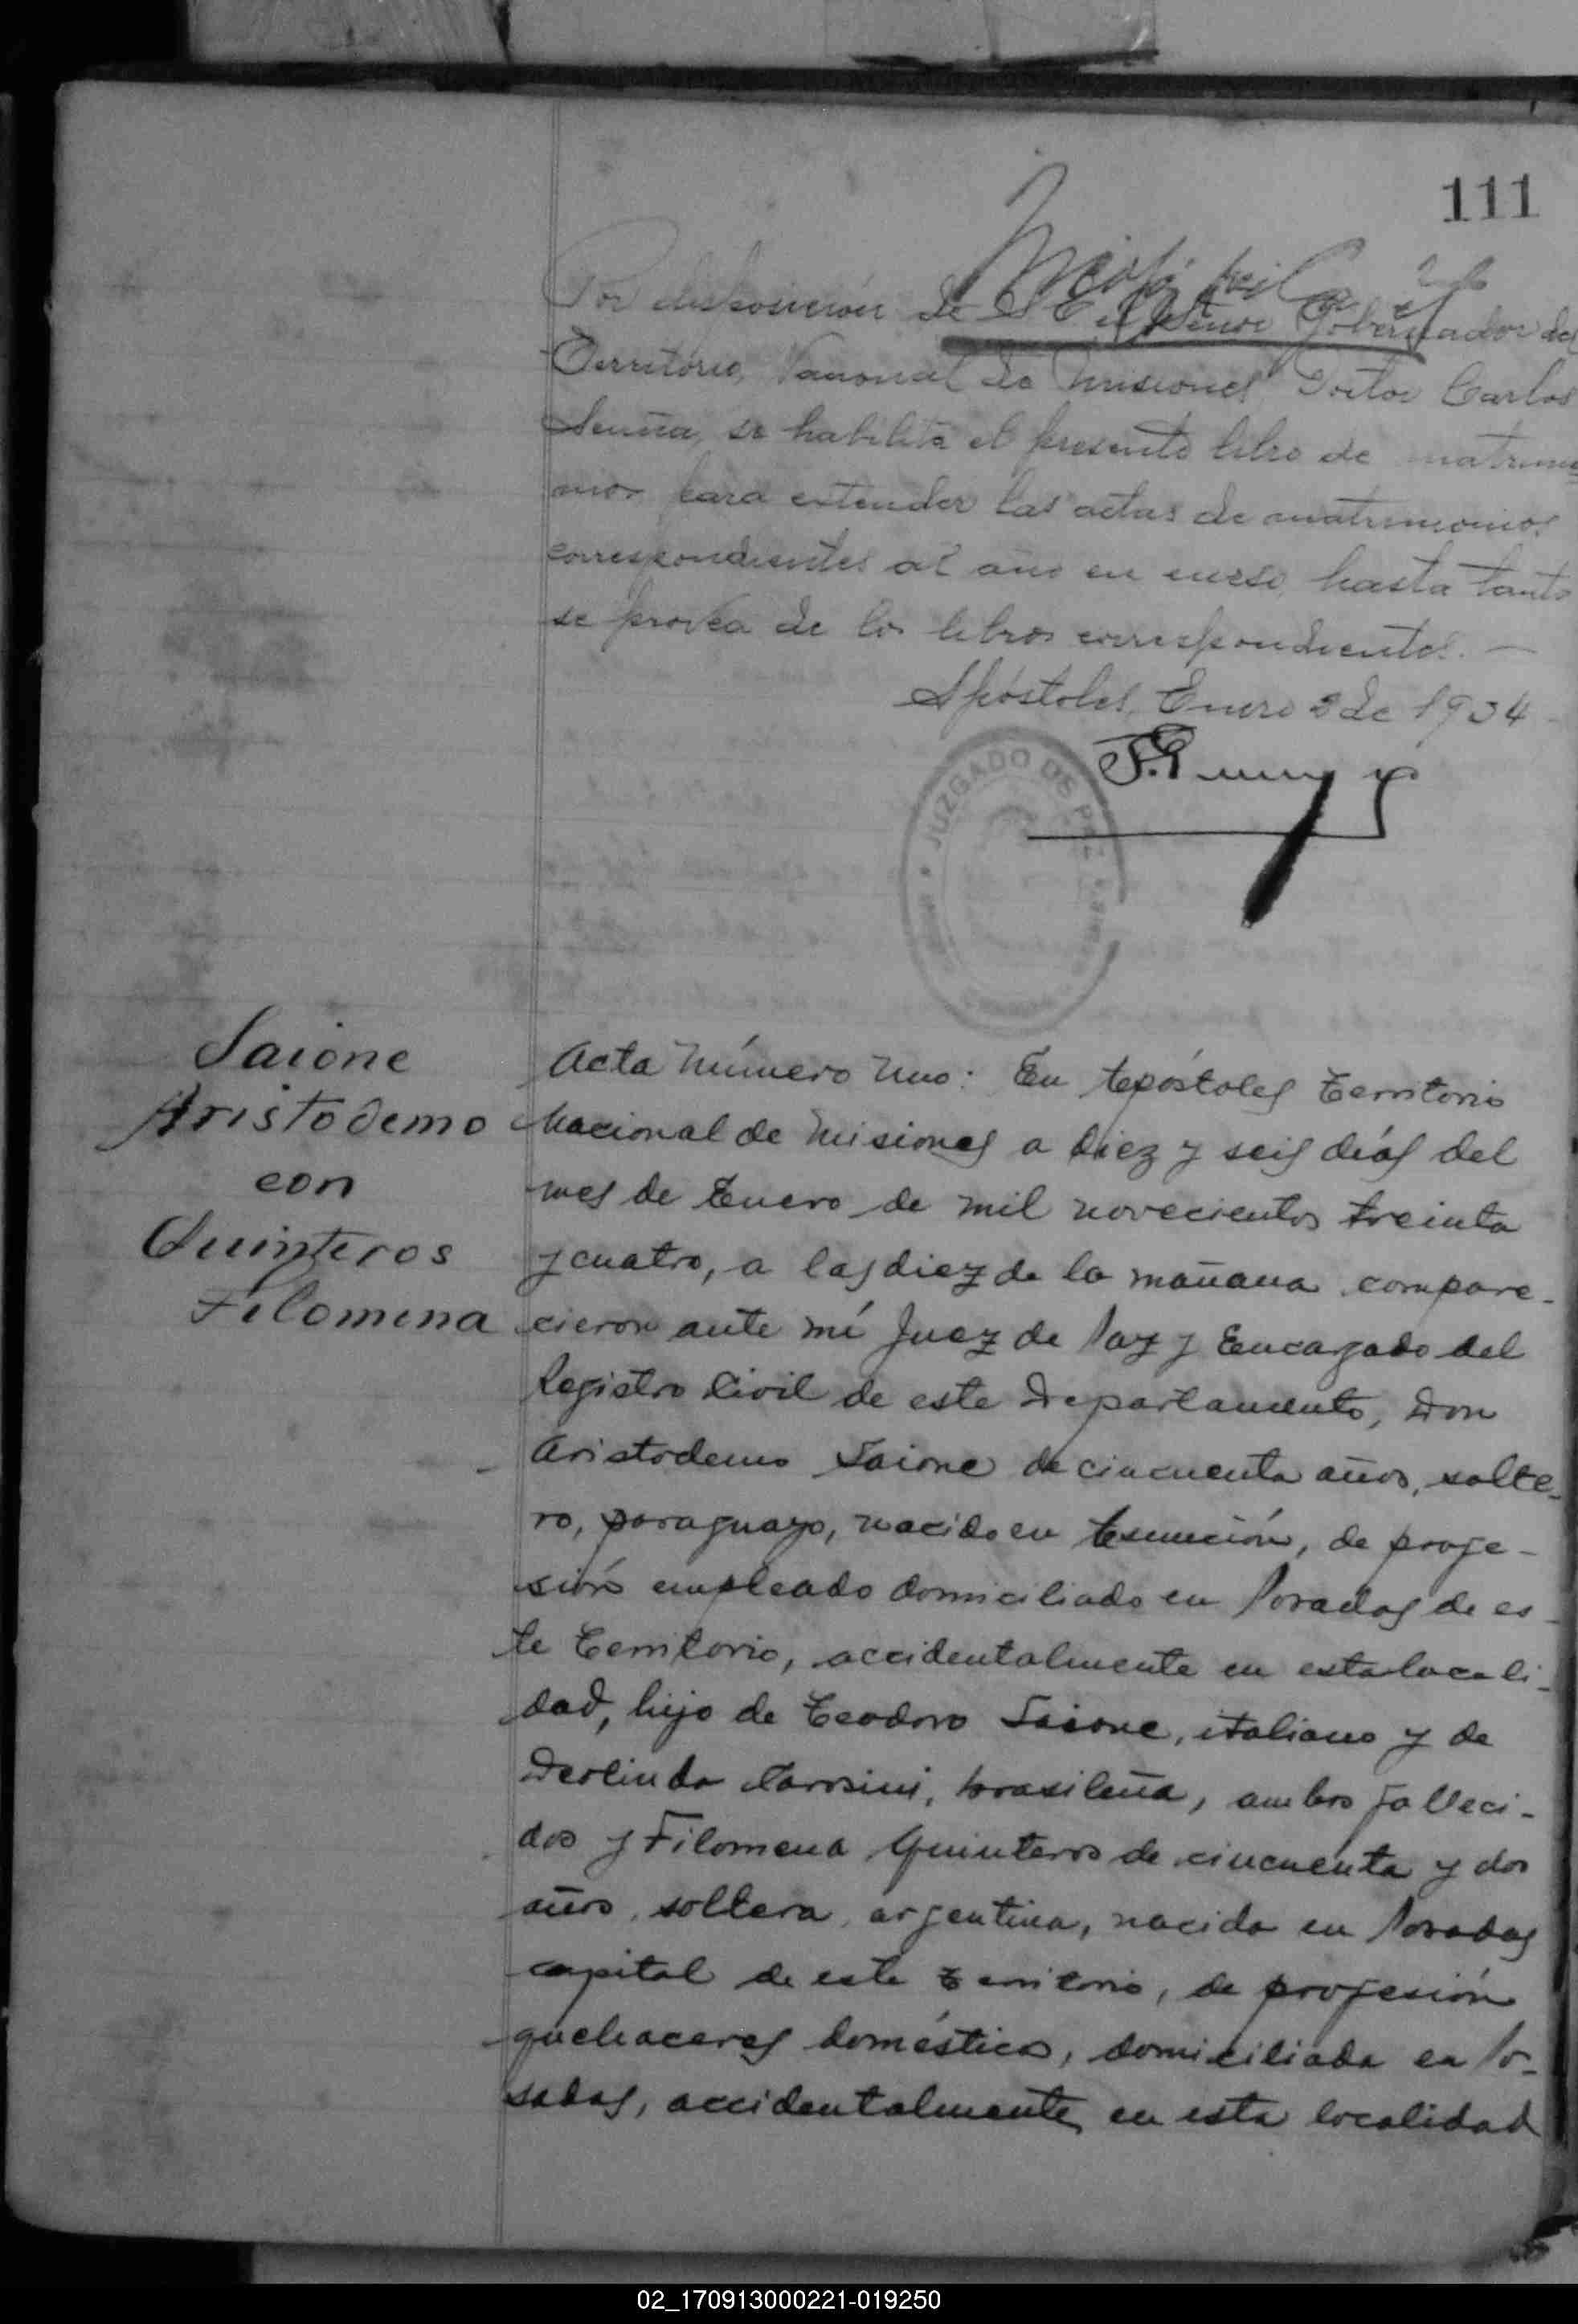 111
Por disposición de S E el Señor Gobernador del
Territorio Nacional de Misiones Doctor Carlos
se habilita el presente libro de matrimo
nios para extender las actas de matrimonios
correspondientes al año en curso, hasta tanto
se provea de los libros correspondientes. —
Apóstoles, Enero 2 de 1934
JUZGADO DE PAZ
Saione
Aristodemo
con
Quinteros
Filomena
Acta Número Uno: En Apóstoles Territorio
Nacional de Misiones a diez y seis días del
mes de Enero de mil novecientos treinta
y cuatro, a las diez de la mañana compare-
cieron ante mí Juez de Paz y Encargado del
Registro Civil de este Departamento, Don
Aristodemo Saione de cincuenta años, solte-
ro, paraguayo, nacido en Asunción, de profe-
sión empleado domiciliado en Posadas de es-
te Territorio, accidentalmente en esta locali-
dad, hijo de Teodoro Saione, italiano y de
Deolinda brasileña, ambos falleci-
dos y Filomena Quinteros de cincuenta y dos
años, soltera, argentina, nacida en Posadas
capital de este Territorio, de profesión
quehaceres domésticos, domiciliada en Po-
sadas, accidentalmente en esta localidad
02_170913000221-019250